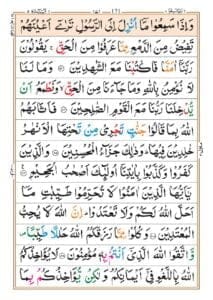 وَاِذَا سَمِعُوۡا مَاۤ اُنۡزِلَ اِلَى الرَّسُوۡلِ تَرٰٓى اَعۡيُنَهُمۡ
تَفِيۡضُ مِنَ الدَّمۡعِ مِمَّا عَرَفُوۡا مِنَ الۡحَـقِّ‌ۚ يَقُوۡلُوۡنَ
رَبَّنَاۤ اٰمَنَّا فَاكۡتُبۡنَا مَعَ الشّٰهِدِيۡنَ وَمَا لَـنَا
لَا نُؤۡمِنُ بِاللّٰهِ وَمَا جَآءَنَا مِنَ الۡحَـقِّۙ وَنَطۡمَعُ اَنۡ
يُّدۡخِلَـنَا رَبُّنَا مَعَ الۡقَوۡمِ الصّٰلِحِيۡنَ فَاَثَابَهُمُ
اللّٰهُ بِمَا قَالُوۡا جَنّٰتٍ تَجۡرِىۡ مِنۡ تَحۡتِهَا الۡاَنۡهٰرُ
خٰلِدِيۡنَ فِيۡهَا‌ؕ وَذٰلِكَ جَزَآءُ الۡمُحۡسِنِيۡنَ وَالَّذِيۡنَ
كَفَرُوۡا وَكَذَّبُوۡا بِاٰيٰتِنَاۤ اُولٰٓئِكَ اَصۡحٰبُ الۡجَحِيۡمِ
يٰۤاَيُّهَا الَّذِيۡنَ اٰمَنُوۡا لَا تُحَرِّمُوۡا طَيِّبٰتِ مَاۤ
اَحَلَّ اللّٰهُ لَـكُمۡ وَلَا تَعۡتَدُوۡا‌ ؕ اِنَّ اللّٰهَ لَا يُحِبُّ
الۡمُعۡتَدِيۡنَ وَكُلُوۡا مِمَّا رَزَقَكُمُ اللّٰهُ حَلٰلًا طَيِّبًا‌
وَّاتَّقُوا اللّٰهَ الَّذِىۡۤ اَنۡـتُمۡ بِهٖ مُؤۡمِنُوۡنَ لَا يُؤَاخِذُكُمُ
اللّٰهُ بِاللَّغۡوِ فِىۡۤ اَيۡمَانِكُمۡ وَلٰـكِنۡ يُّؤَاخِذُكُمۡ بِمَا